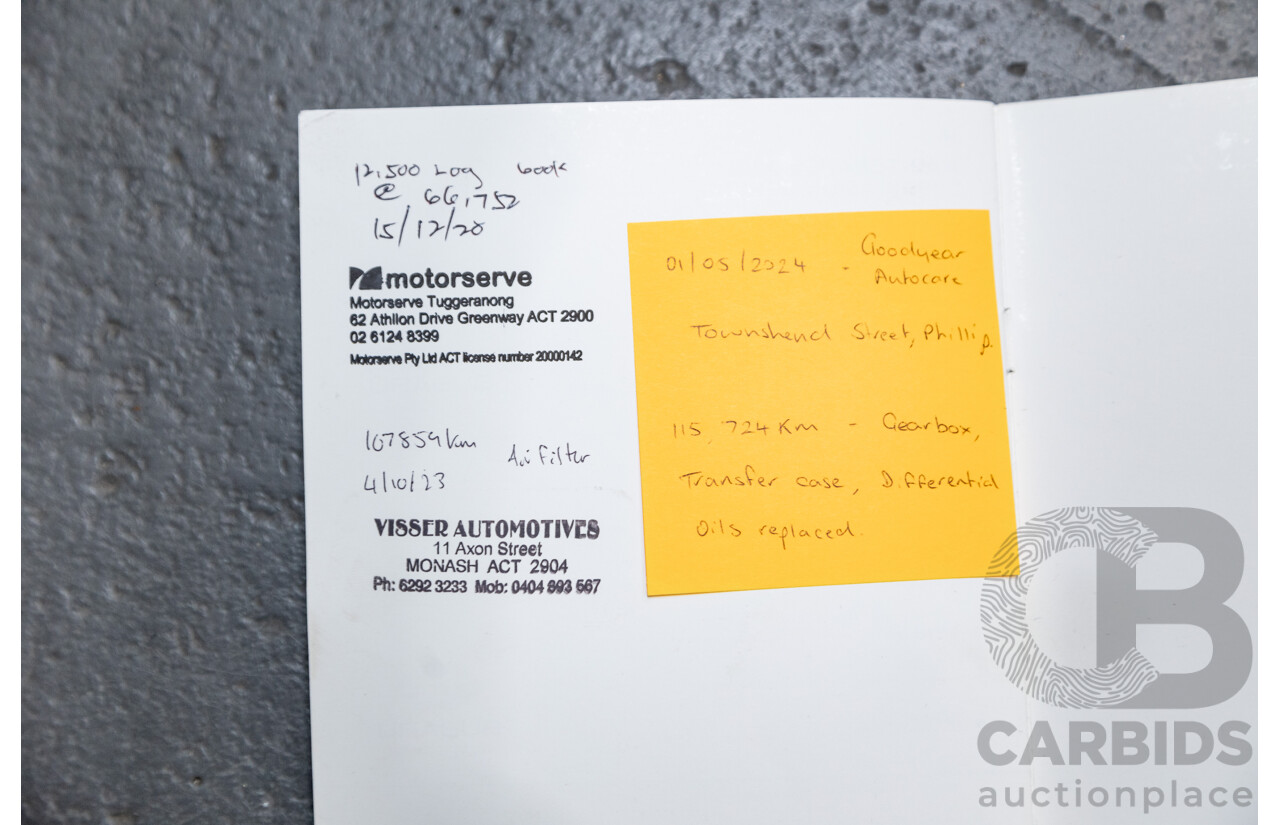 12,500 Log book
@ 66,752
15/12/20
motorserve
Motorserve Tuggeranong
62 Athllon Drive Greenway ACT 2900
02 6124 8399
Motorserve Pty Ltd ACT license number 20000142
107859km Air Filter
4/10/23
VISSER AUTOMOTIVES
11 Axon Street
MONASH ACT 2904
Ph: 6292 3233 Mob: 0404 893 567
01/05/2024 - Goodyear
Autocare
Townshend Street, Phillip.
115,724 Km - Gearbox,
Transfer case, Differential
Oils replaced.
CB
CARBIDS
auctionplace